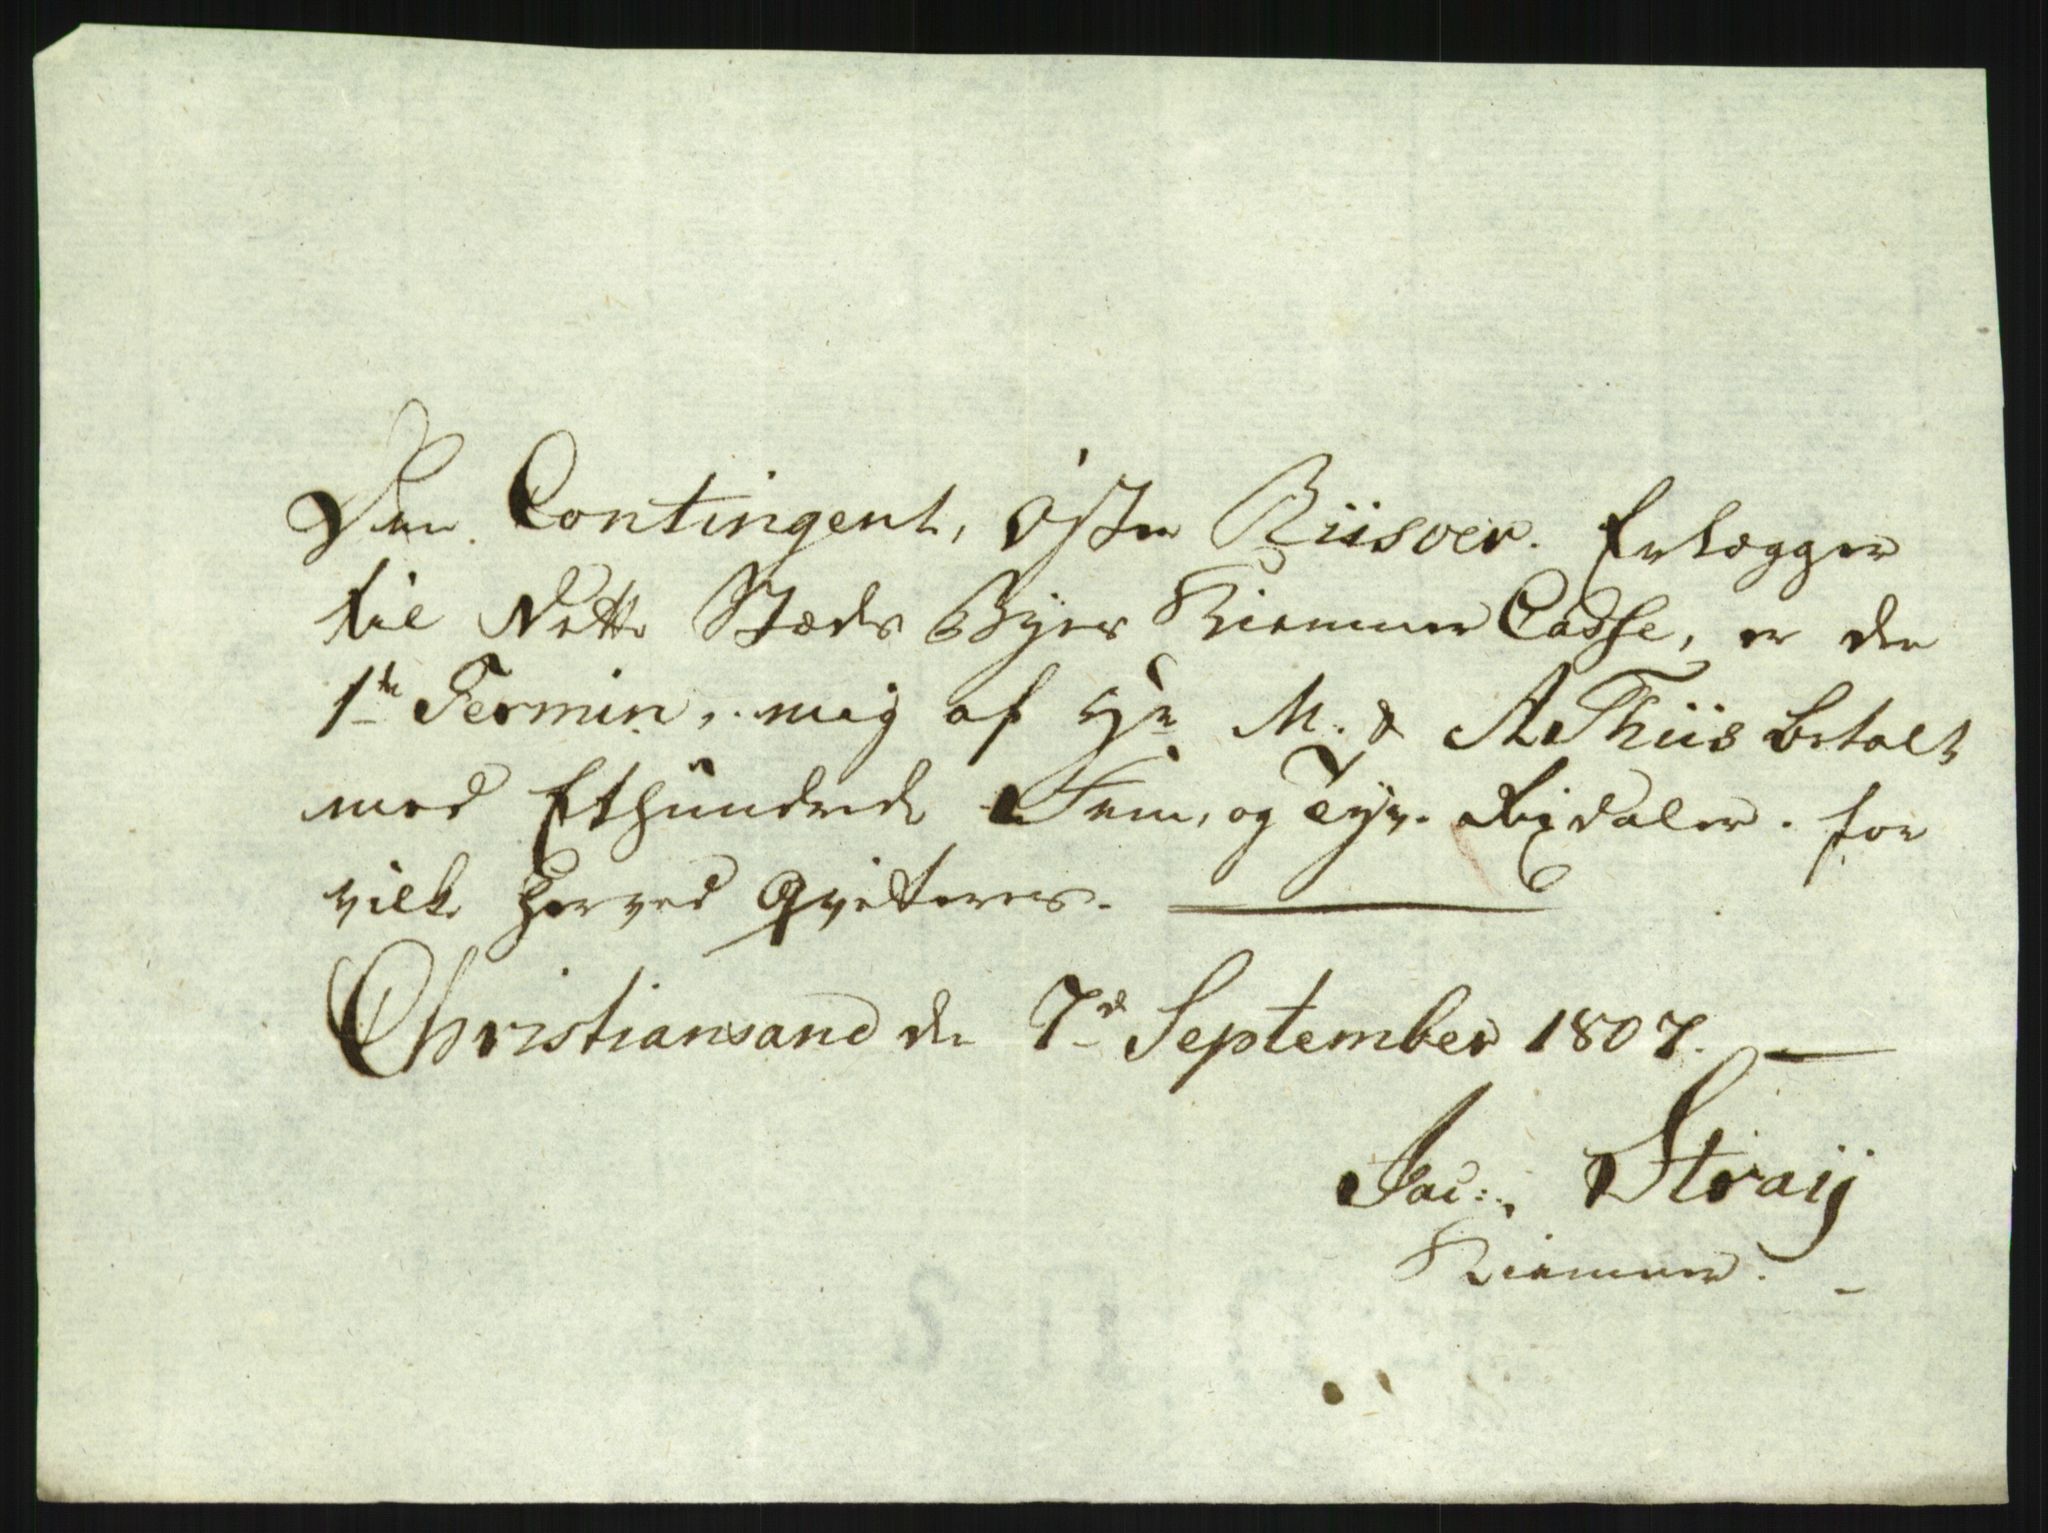 Den Contingent, Øster Riisöer. Erlægger
til dette Stæds Byes Kiemner Casse, er den
1te Termin, mig af Hr. M. & A Thiis Betalt
med Ethündrede Fem, og Tyve Rixdaler. for
vilke Herved Qvitteres.
Christiansand den 7de September 1807.
Jac: Straÿ
Kiemner.